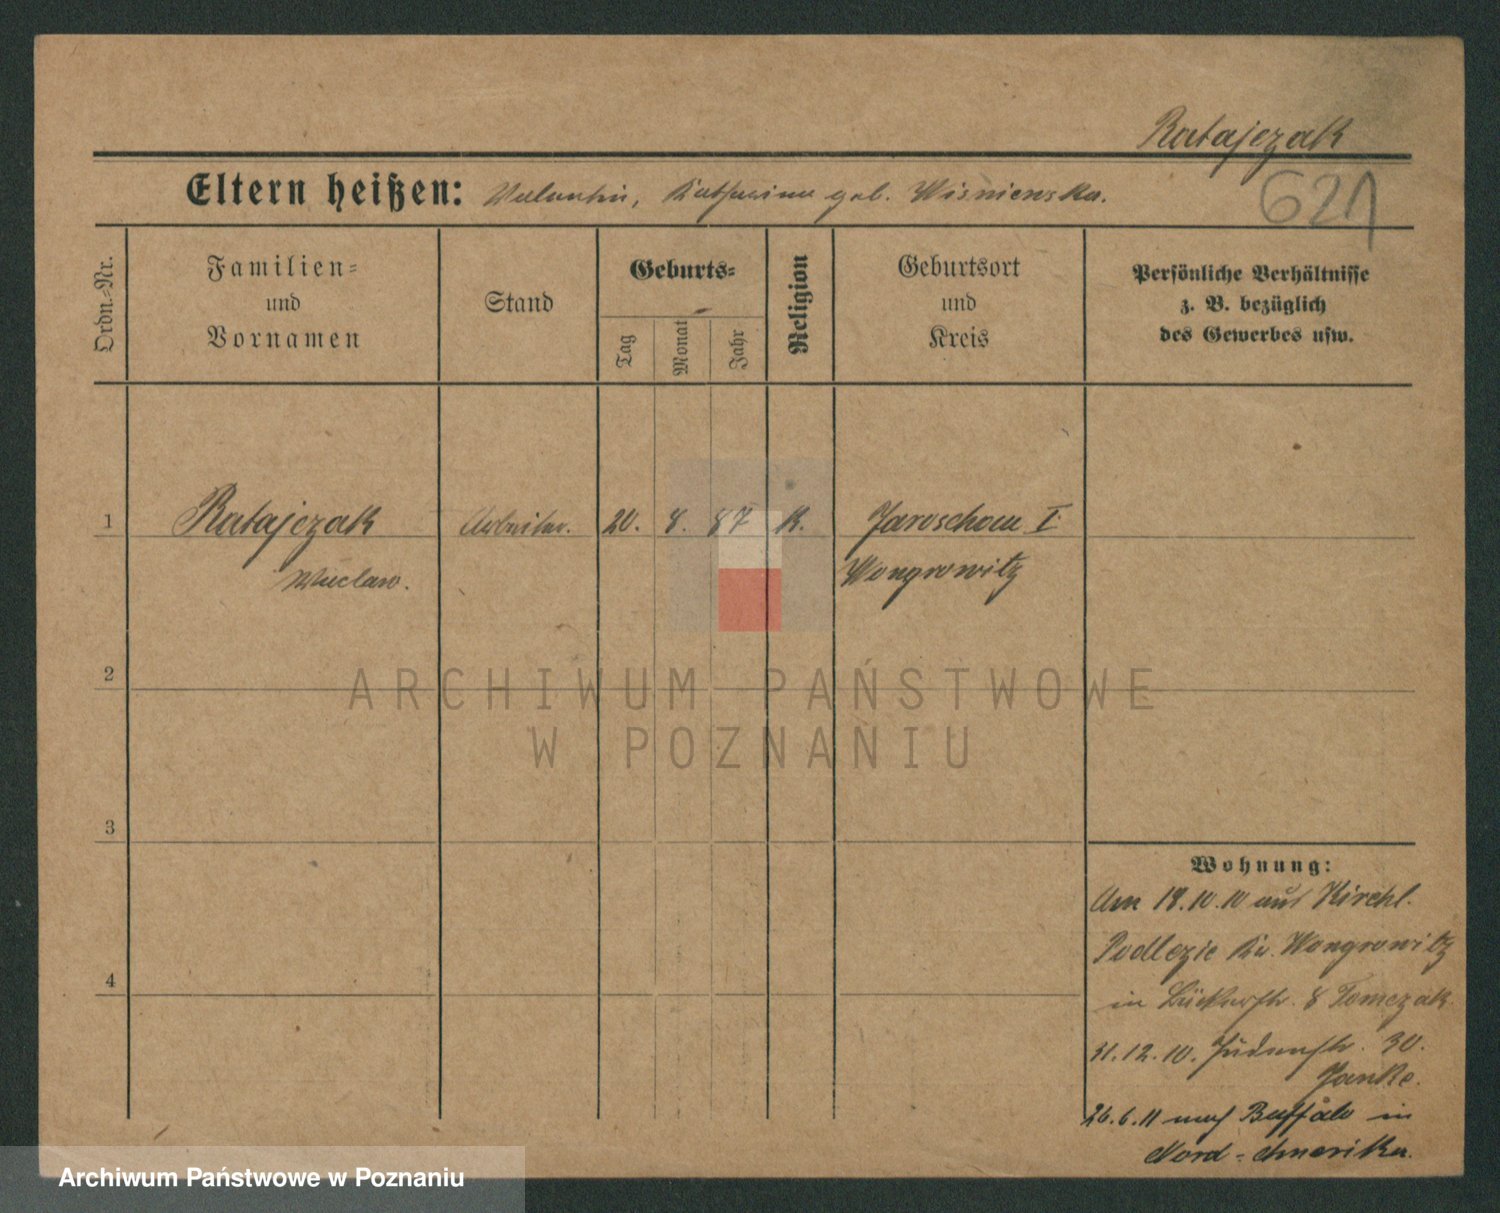 Ratajczak
Eltern heißen: Valentin, Katharina geb. Wisniewska.
621
Ordn.-Nr.
Familien-
und
Vornamen
Stand
Geburts-
Tag
Monat
Jahr
Religion
Geburtsort
und
Kreis
Persönliche Verhältnisse
z. B. bezüglich
des Gewerbes usw.
1 Ratajczak Arbeiter. 20. 8. 87 K. Jaroschau I
Waclaw. Wongrowitz
2
3
4
Wohnung:
Am 18.10.10 aus Kirchl.
Podlezie Kr. Wongrowitz
in 8 Tomczak.
31.12.10. Judenstr. 30.
Janke.
26.6.11 nach Buffalo in
Nord-Amerika.
ARCHIWUM PAŃSTWOWE
W POZNANIU
Archiwum Państwowe w Poznaniu